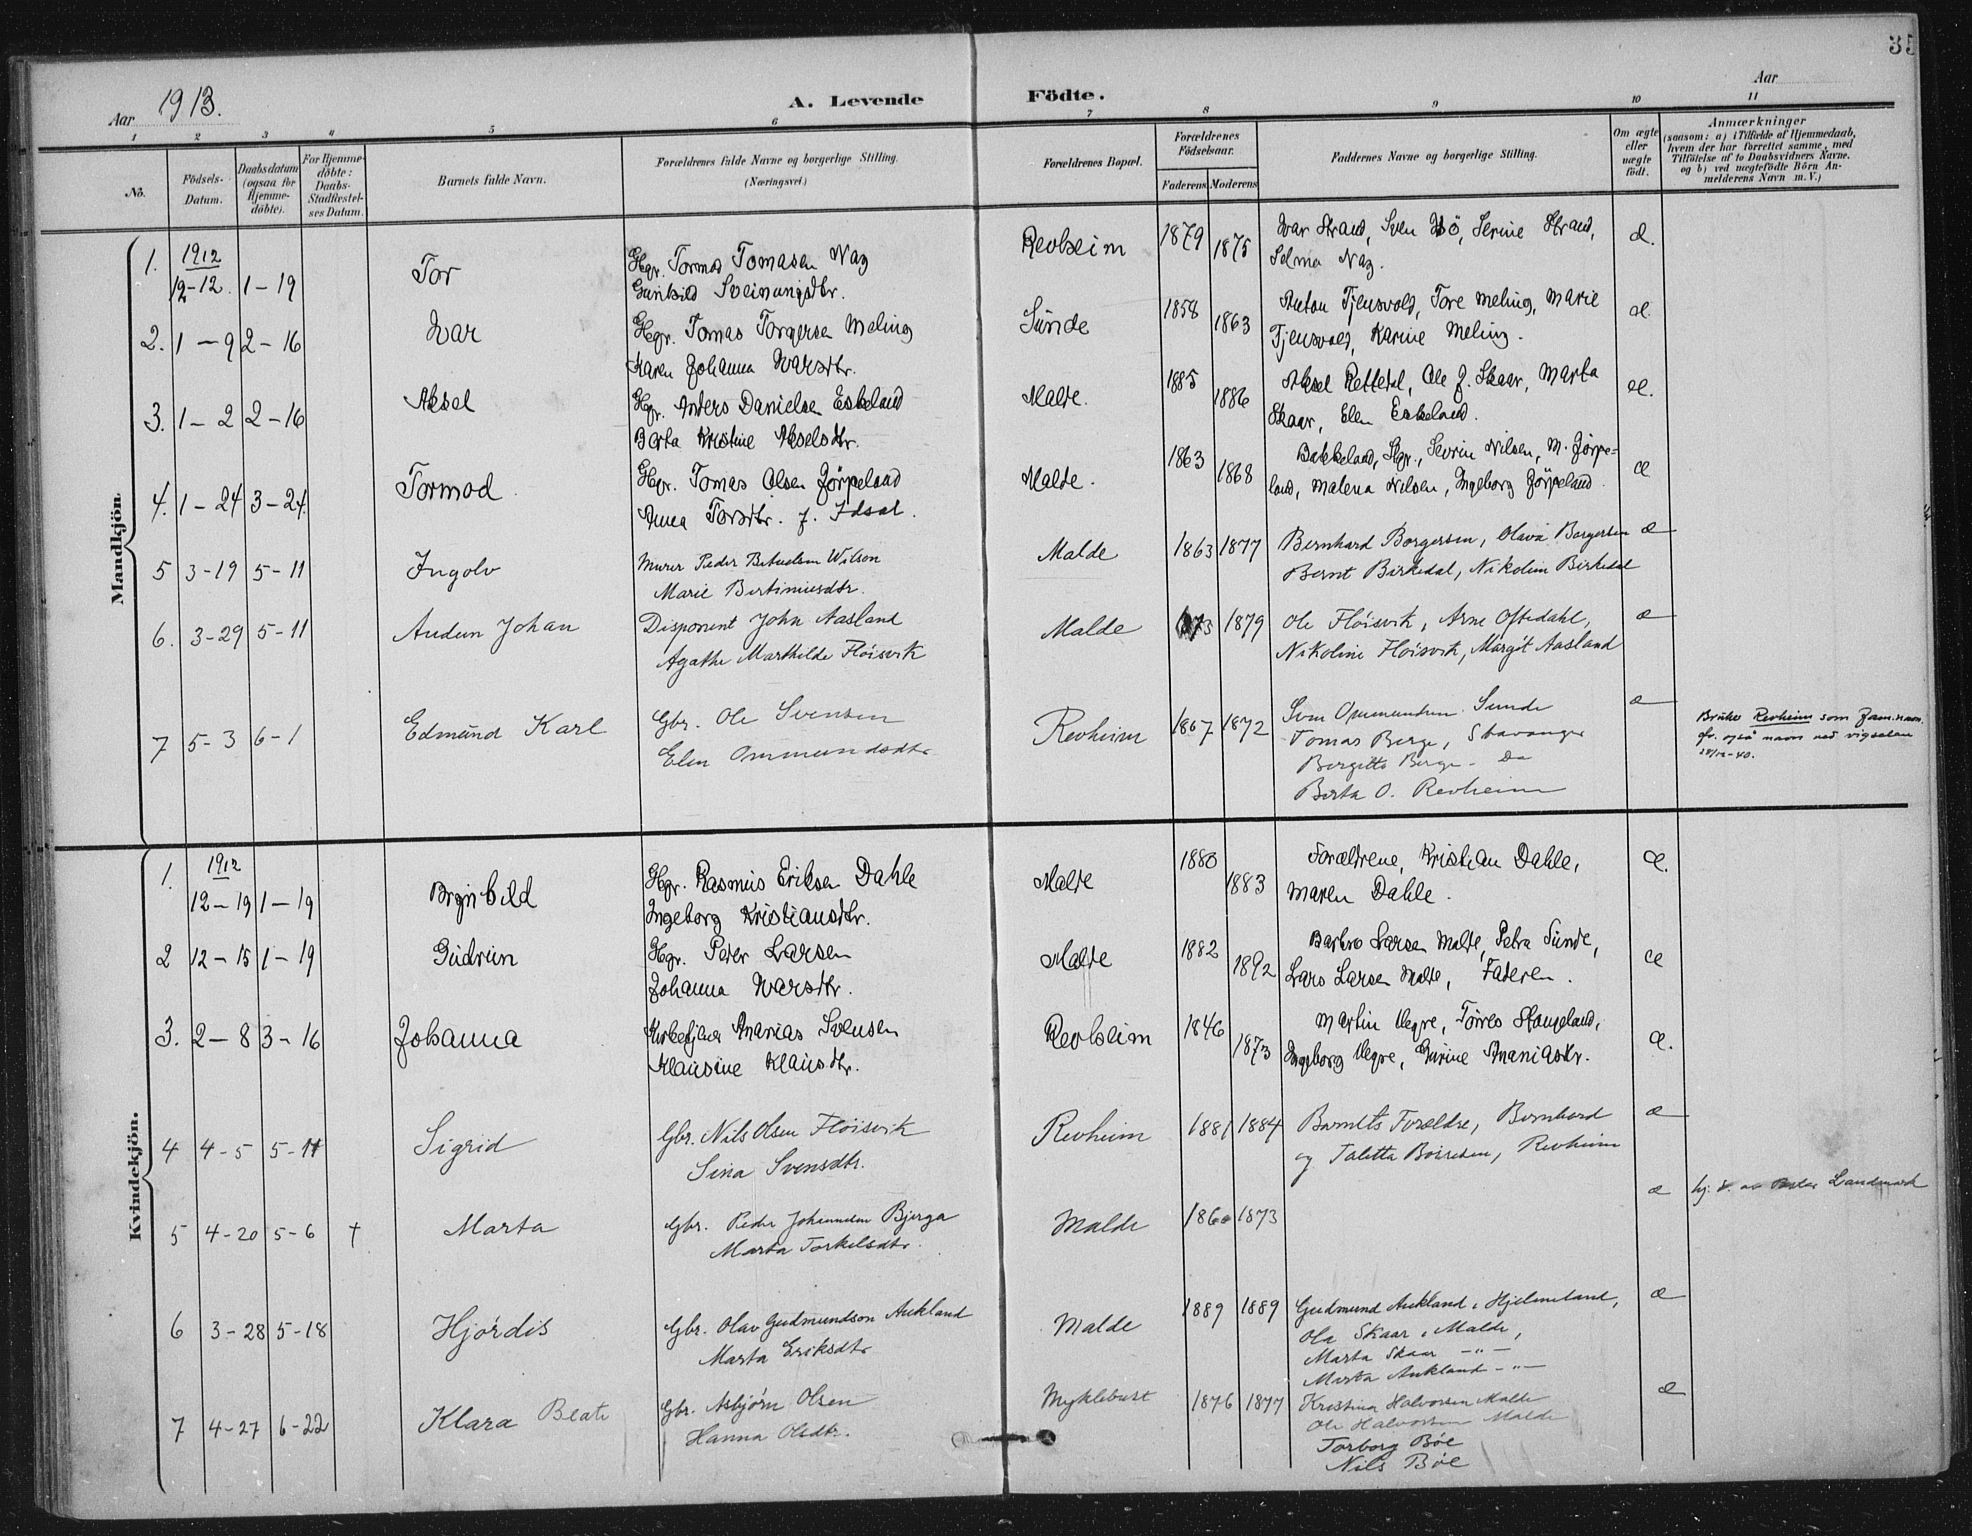 35
Aar 1913.
A. Levende Födte.
Aar
1 2 3 4 5 6 7 8 9 10 11
No.
Födsels-Datum.
Daabsdatum (ogsaa for Hjemme-döbte).
For Hjemme-döbte: Daabs-Stadfæstel-ses Datum.
Barnets fulde Navn.
Forældrenes fulde Navne og borgerlige Stilling.
(Næringsvei.)
Forældrenes Bopæl.
Forældrenes Födselsaar.
Faderens Moderens
Faddernes Navne og borgerlige Stilling.
Om ægte eller uægte födt.
Anmærkninger
(saasom: a) i Tilfælde af Hjemmedaab,
hvem der har forrettet samme, med
Tilföielse af to Daabsvidners Navne.
og b) ved uægtefödte Börn An-
melderens Navn m. V.)
Mandkjön.
1. 1912 12-12. 1-19 Tor Hgr. Tormod Tomasen Nag Revheim 1879 1875 Ivar Strand, Sven Bö, Serine Strand, æ.
Gunhild Sveinungsdtr. Selma Nag.
2. 1-9 2-16 Ivar Hgr. Tomas Torgersen Meling Sünde 1858 1863 Anton Tjensvold, Tore Meling, Marie æ.
Karen Johanna Ivarsdtr. Tjensvold, Karine Meling.
3. 1-2 2-16 Aksel Hgr. Anders Danielsen Eskeland Malde. 1885 1886 Aksel Rettedal, Ole J. Skaar, Marta æ.
Berta Kristine Akselsdtr. Skaar, Elen Eskeland.
4. 1-24 3-24. Tormod Hgr. Tomas Olsen Jörpeland Malde. 1863 1868 Bakkeland, Hgr., Sevrin Nilsen, M. Jörpe= æ
Anna Torsdtr. f. Idsal. land, Malena Nilsen, Ingeborg Jörpeland.
5 3-19 5-11 Ingolv Murer Peder Betuelsen Wilson Malde 1863 1877 Bernhard Borgersen, Olava Borgersen æ
Marie Bertiniusdtr. Bernt Birkedal, Nikoline Birkedal
6. 3-29 5-11 Audun Johan Disponent John Aasland Malde 1873 1879 Ole Flöisvik, Arne Oftedahl, æ
Agathe Marthilde Flöisvik Nikoline Flöisvik, Margit Aasland
7 5-3 6-1 Edmünd Karl Gbr. Ole Svensen Revheim 1867 1872 Sven Ommundsen Sunde æ
Elen Ommundsdtr Tomas Berge, Stavanger
Bergitte Berge - Do
Berta O. Revheim
Bruker Revheim som fam.navn.
også navn ved vigselen
-40.
Kvindekjön.
1. 1912 12-19 1-19 Brynhild Hgr. Rasmus Eriksen Dahle Malde 1880 1883 Forældrene, Kristian Dahle, æ.
Ingeborg Kristiansdtr. Maren Dahle.
2 12-15 1-19 Gudrün Hgr. Peder Larsen Malde 1882 1892 Barbro Larsen Malde, Petra Sünde, æ
Johanna Ivarsdtr. Lars Larsen Malde, Faderen.
3. 2-8 3-16 Johanna Kirketjener Ananias Svensen Revheim 1846 1873 Martin Vegre, Törres Haugeland, æ.
Klausine Klausdtr. Ingeborg Vegre, Gurine Ananiasdtr.
4 4-5 5-11 Sigrid Gbr. Nils Olsen Flöisvik Revheim 1881 1884 Barnets Forældre, Bernhard æ
Sina Svensdtr. og Taletta Börresen, Revheim
5 4-20 5-6 † Marta Gbr. Peder Johannesen Bjerga Malde 1860 1873 æ hj. d. av Landmark
Marta Torkelsdtr.
6 3-28 5-18 Hjördis Gbr. Olav Gudmundson Aukland Malde 1889 1889 Gudmund Aukland, Hjelmeland, æ
Marta Eriksdtr Ole Skaar, Malde,
Marta Skaar -"-
Marta Aukland -"-
7 4-27 6-22 Klara Beate Gbr. Asbjörn Olsen Myklebust 1876 1877 Kristina Halvorsen Malde æ
Hanna Olsdtr. Ole Halvorsen Malde
Torborg Böe
Nils Böe